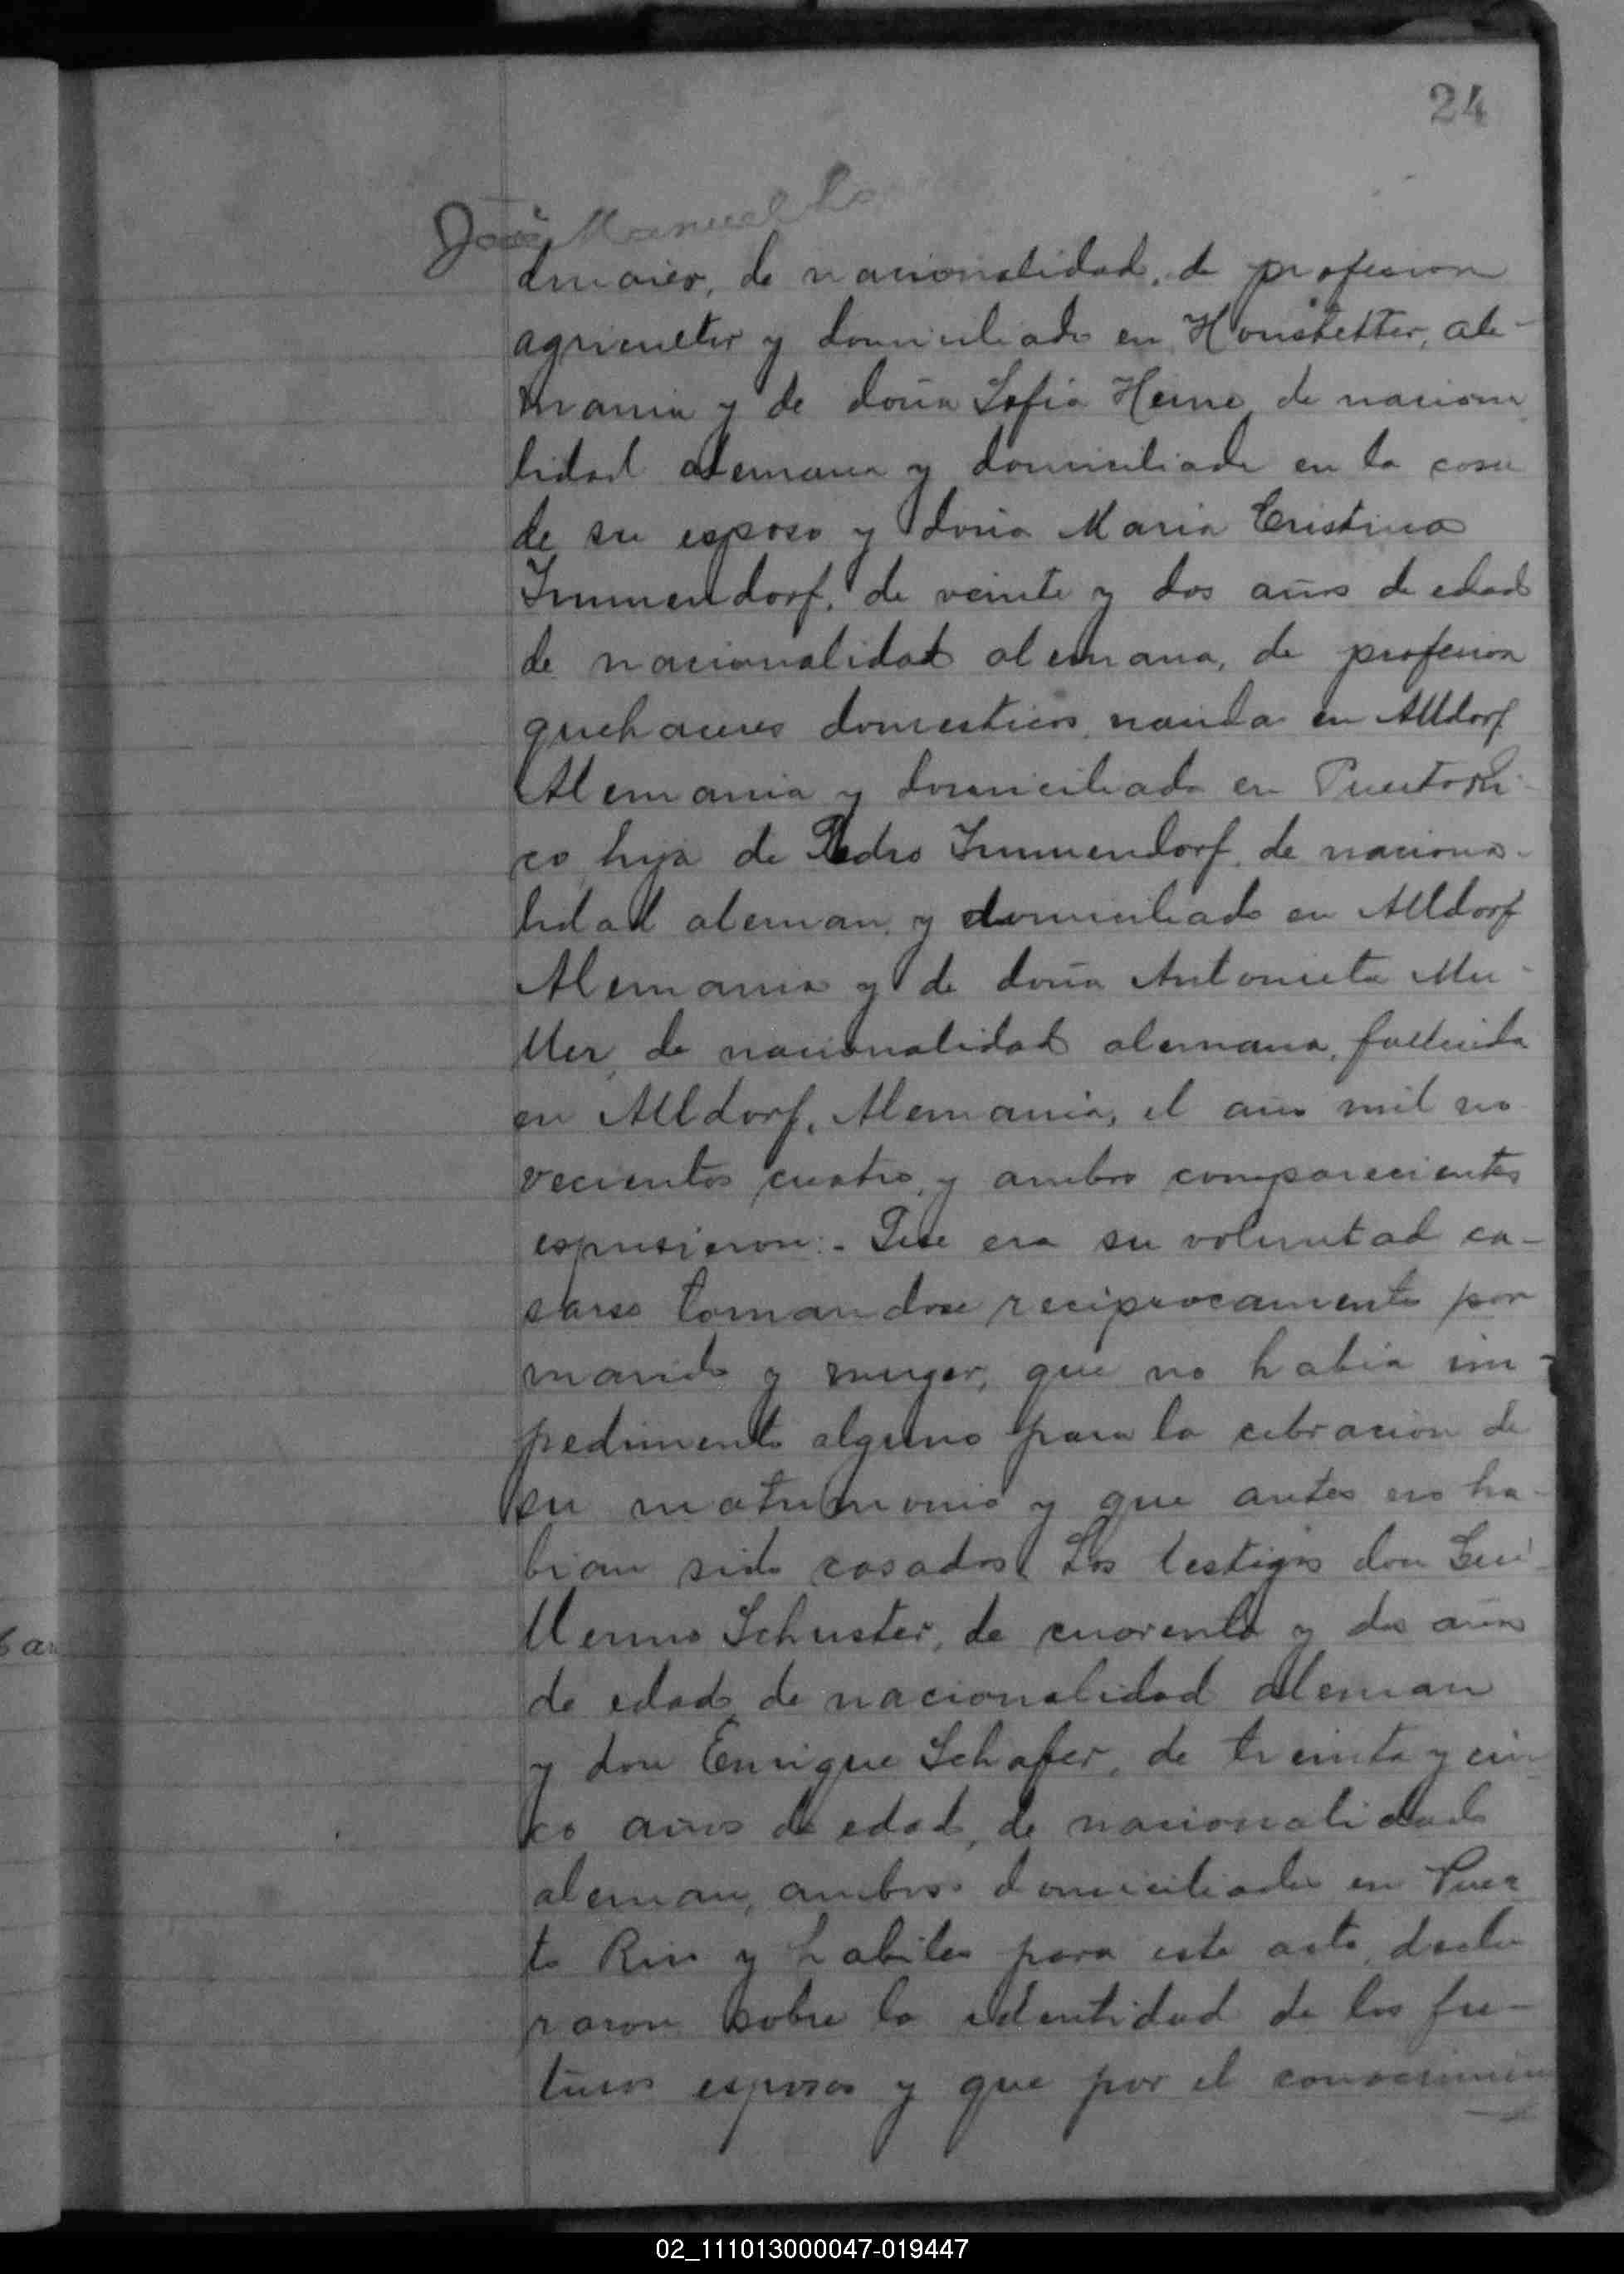 24
José Manuel Lo
dmaier, de nacionalidad, de profesion
agricultor y domiciliado en Honstetter, ale-
mania y de doña Sofia Heine de naciona
lidad alemana y domiciliada en la casa
de su esposo y doña Maria Cristina
Immendorf, de veinte y dos años de edad
de nacionalidad alemana, de profesion
quehaceres domesticos, nacida en Alldorf
Alemania y domiciliada en Puerto Ri-
co hija de Pedro Immendorf, de naciona-
lidad aleman, y domiciliado en Alldorf
Alemania y de doña Antonieta Mu-
ller, de nacionalidad alemana, fallecida
en Alldorf, Alemania, el año mil no
vecientos cuatro, y ambos comparecientes
espusieron:- Que era su voluntad ca-
sarse tomandose reciprocamente por
marido y muger, que no habia im-
pedimento alguno para la cebracion de
su matrimonio y que antes no ha-
bian sido casados. Los testigos don Gui-
llermo Schuster, de cuarenta y dos años
de edad, de nacionalidad aleman
y don Enrique Schafer, de treinta y cin
co años de edad, de nacionalidad
aleman, ambos domiciliados en Puer
to Rico y habiles para este acto, decla
raron sobre la identidad de los fu-
turos esposos y que por el conocimien
02_111013000047-019447